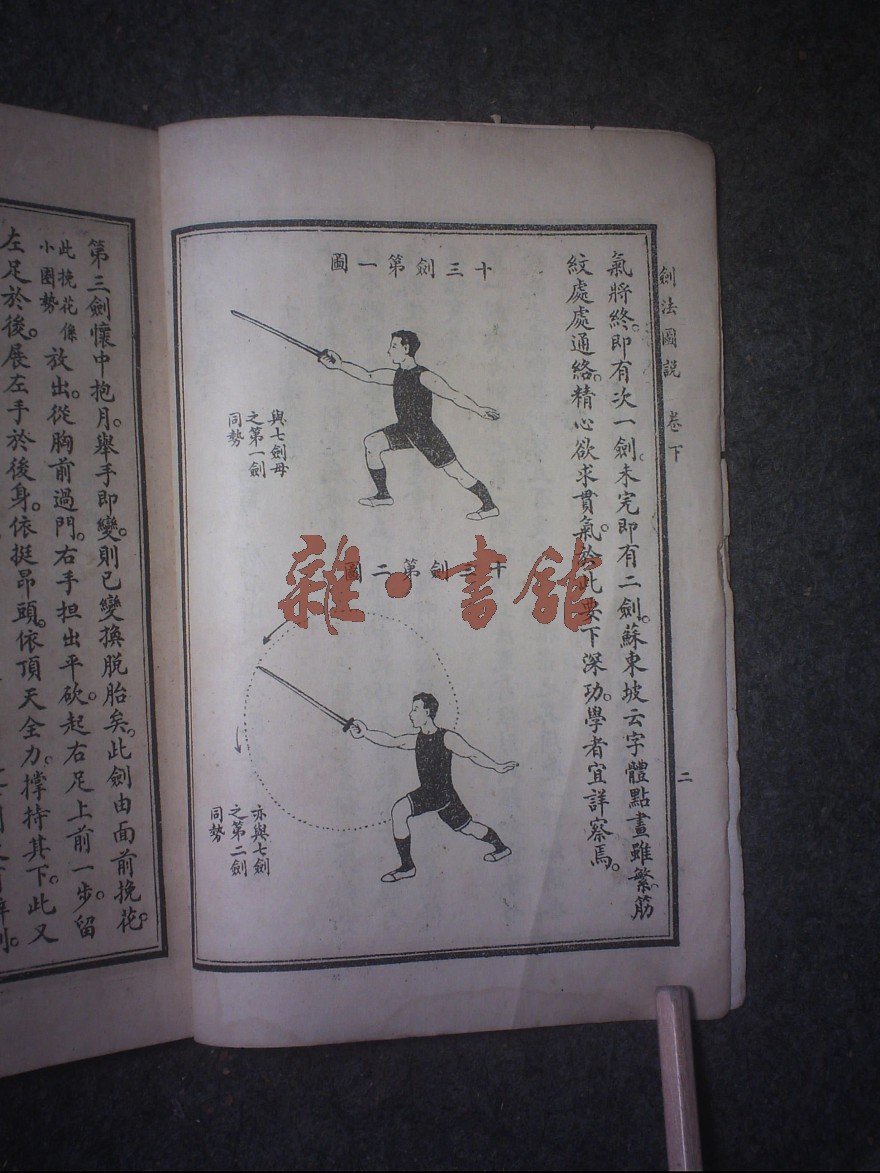 劍法圖説 卷下
二
氣將終。即有次一劍。未完即有二劍。蘇東坡云字體點畫雖繁。筋
紋處處通絡。精心欲求貫氣。於此要下深功。學者宜詳察焉。
十三劍第一圖
與七劍母
之第一劍
同勢
十三劍第二圖
亦與七劍
之第二劍
同勢
雜·書館
第三劍懷中抱月。舉手即變。則已變換脱胎矣。此劍由面前挽花。
此挽花係
小圈勢
放出。從胸前過門。右手担出平砍。起右足上前一步。留
左足於後。展左手於後身。依挺昂頭。依頂天全力。撑持其下。此又